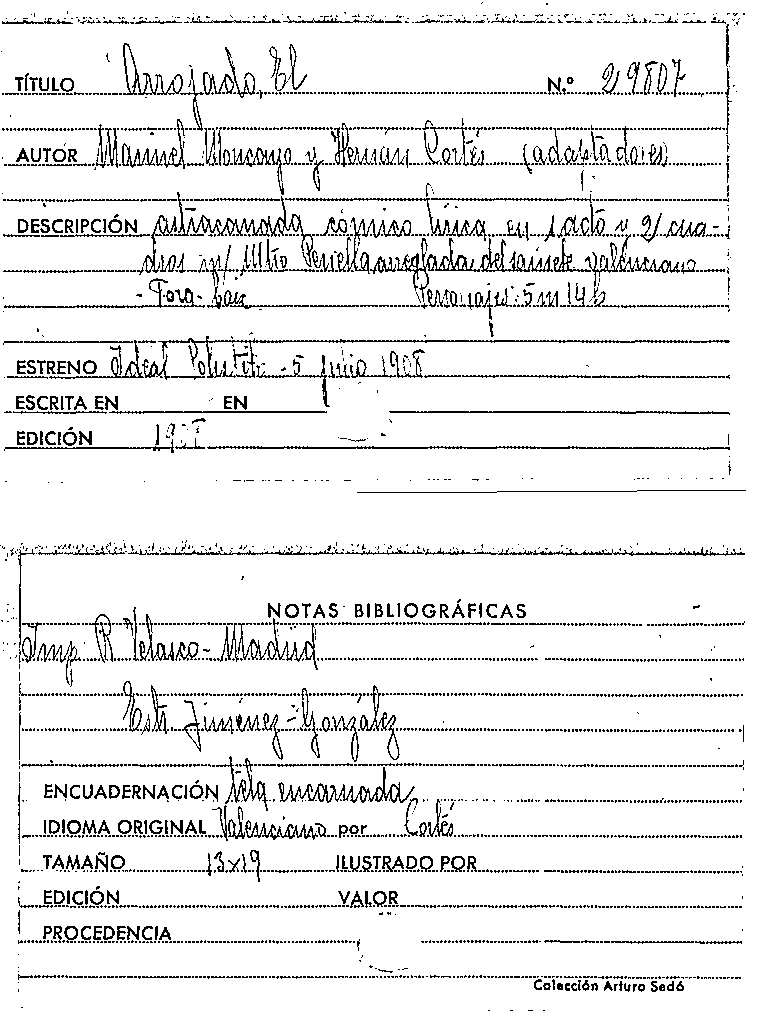 TÍTULO Arrojado, El N.º 29807
AUTOR Manuel Moncayo y Hernán Cortés (adaptadores)
DESCRIPCIÓN astracanada cómico lírica en 1 acto y 2 cua-
dros m/ Mtro Penella arreglada del sainete valenciano
- Personajes: 5 m 14 h
ESTRENO Ideal Polistilo - 5 junio 1908
ESCRITA EN EN
EDICIÓN 1908
NOTAS BIBLIOGRÁFICAS
Imp. R Velasco - Madrid
Estr. Jiménez - González
ENCUADERNACIÓN tela encarnada
IDIOMA ORIGINAL Valenciano por Cortés
TAMAÑO 13x19 ILUSTRADO POR
EDICIÓN VALOR
PROCEDENCIA
Colección Arturo Sedó